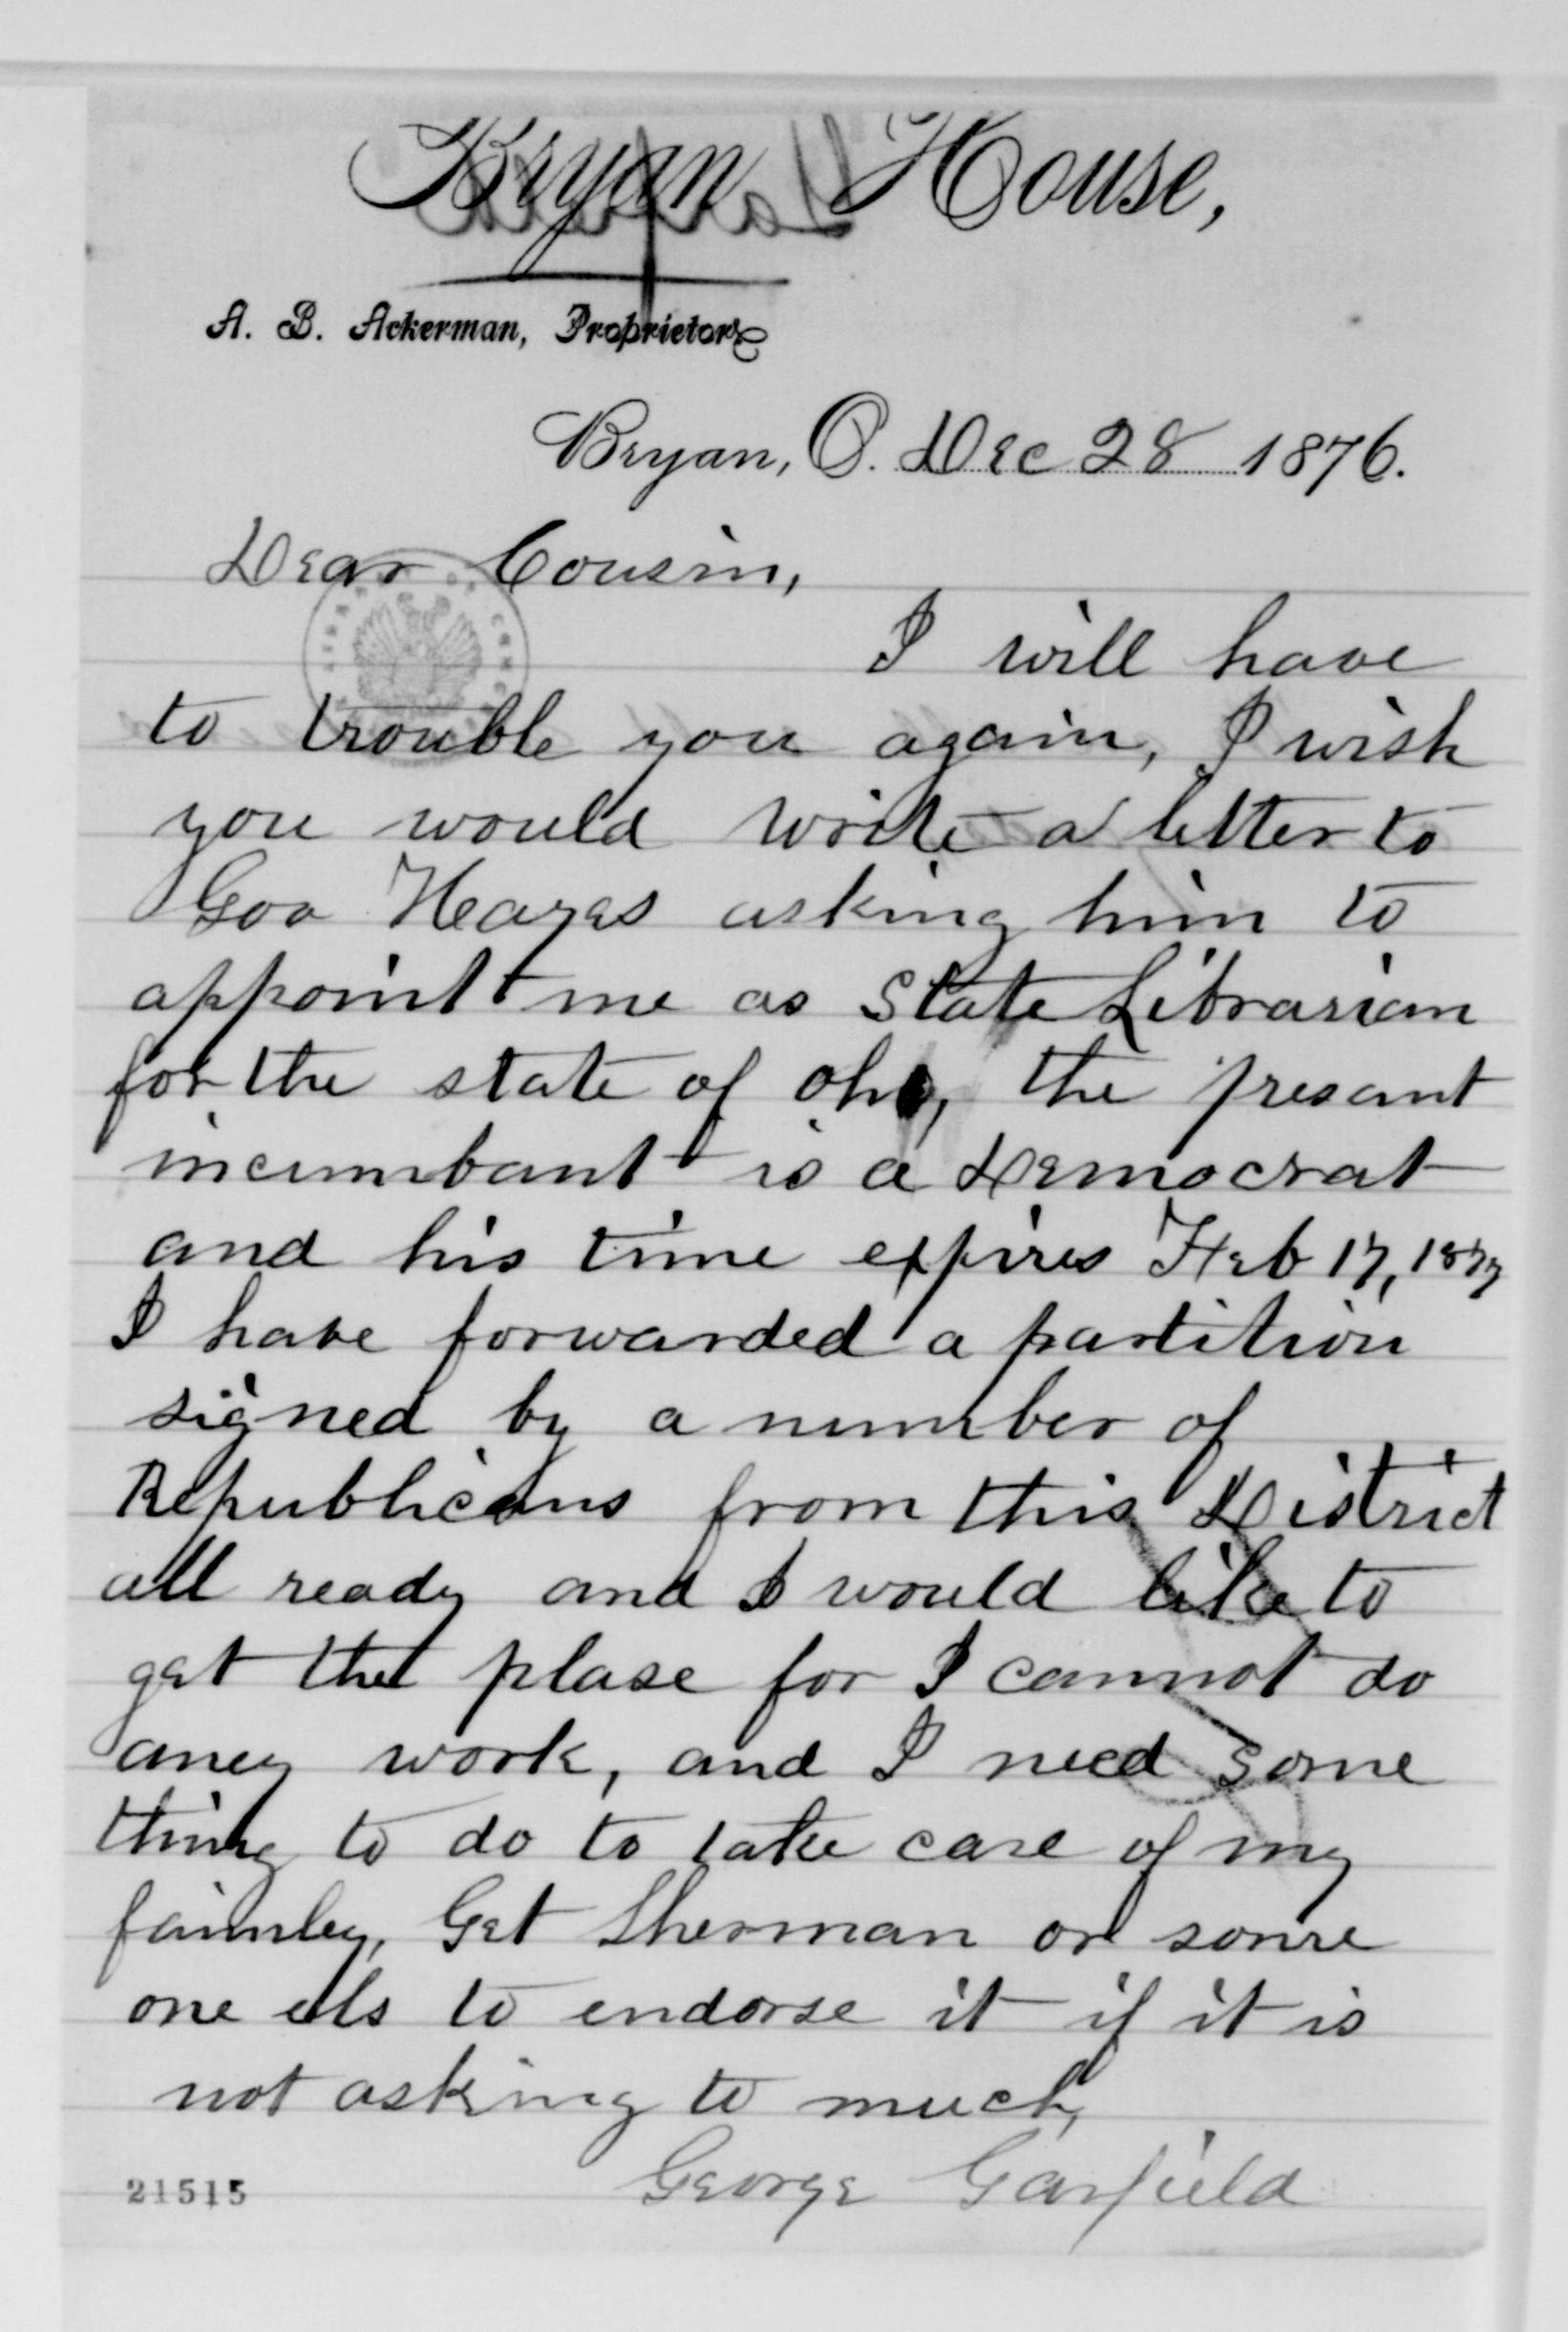 Bryan House,
A. B. Ackerman, Proprietor
Bryan, O. Dec 28 1876.
Dear Cousin,
I will have
to trouble you again, I wish
you would write a letter to
Gov Heayes asking him to
appoint me as State Librarian
for the state of oho, the presant
incumbant is a Democrat
and his time expires Feb 17, 1877
I have forwarded a partition
signed by a number of
Republicans from this District
all ready and I would like to
get the plase for I cannot do
aney work, and I need some
thing to do to take care of my
faimley, Get Sherman or some
one els to endorse it if it is
not asking to much,
George Garfield
21515